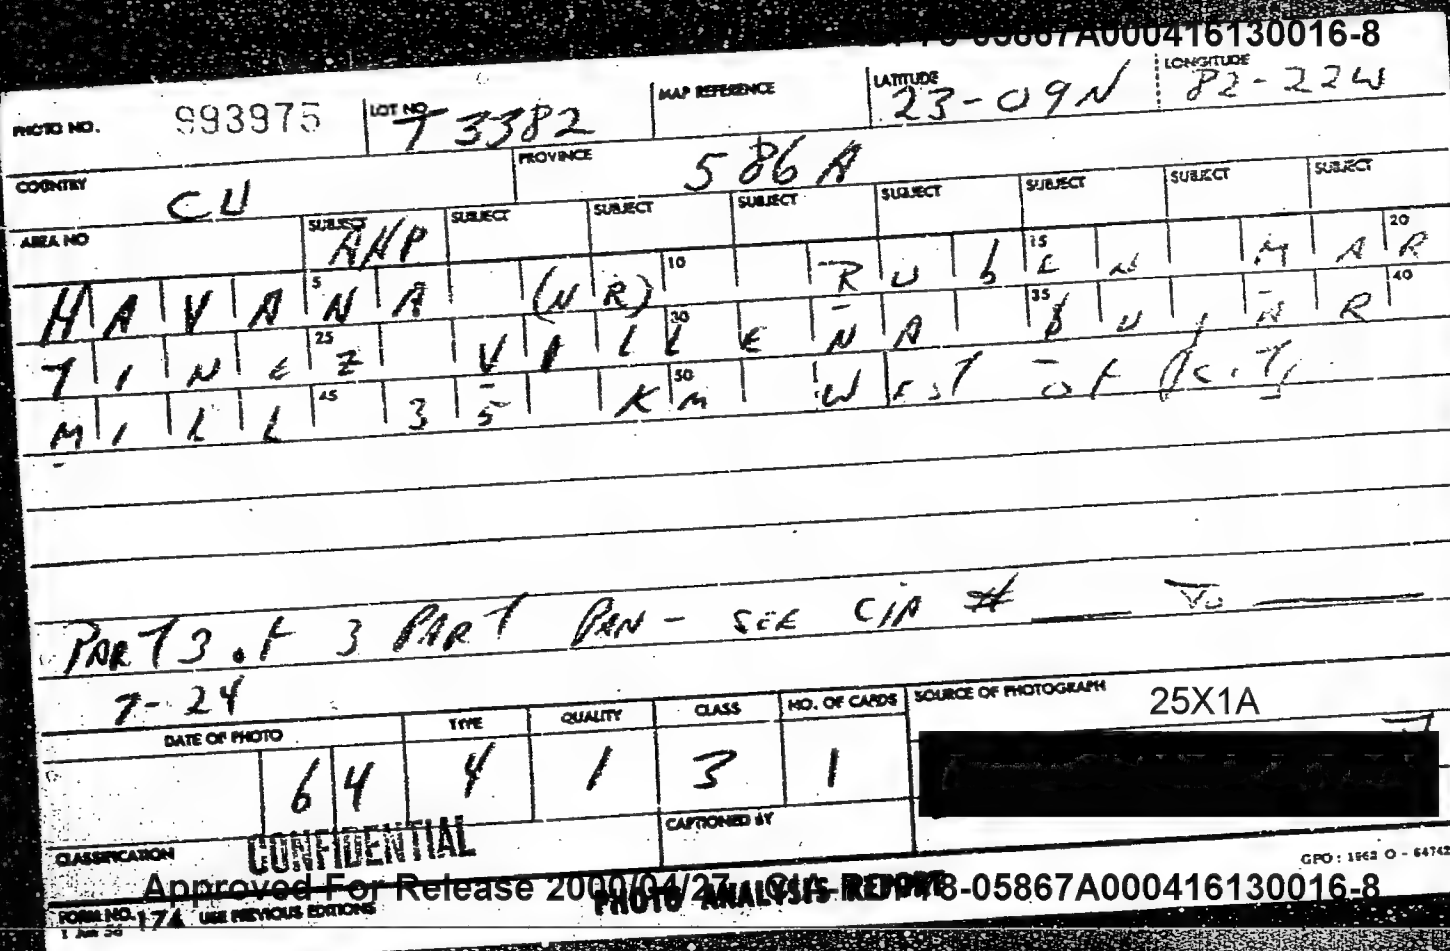 05867A000416130016-8
PHOTO NO. 993975 LOT NO. T 3382 MAP REFERENCE LATITUDE 23-09N LONGITUDE 82-22W
COUNTRY CU PROVINCE 586A
AREA NO SUBJECT ANP SUBJECT SUBJECT SUBJECT SUBJECT SUBJECT SUBJECT SUBJECT
5 10 15 20
HAVANA (NR) RUBEN MAR
25 30 35 40
TINEZ VILLENA SUGAR
45 50
MILL 35 KM WEST OF
PART 3 of 3 PART PAN - SEE CIA # ___ TO ___
7-24
DATE OF PHOTO TYPE QUALITY CLASS NO. OF CARDS SOURCE OF PHOTOGRAPH 25X1A
64 4 1 3 1
CLASSIFICATION CONFIDENTIAL CAPTIONED BY
GPO : 1962 O - 64742
Approved For Release 2000/04/27 : CIA-RDP78-05867A000416130016-8
PHOTO ANALYSIS REPORT
FORM NO. 174 USE PREVIOUS EDITIONS
1 Jun 56